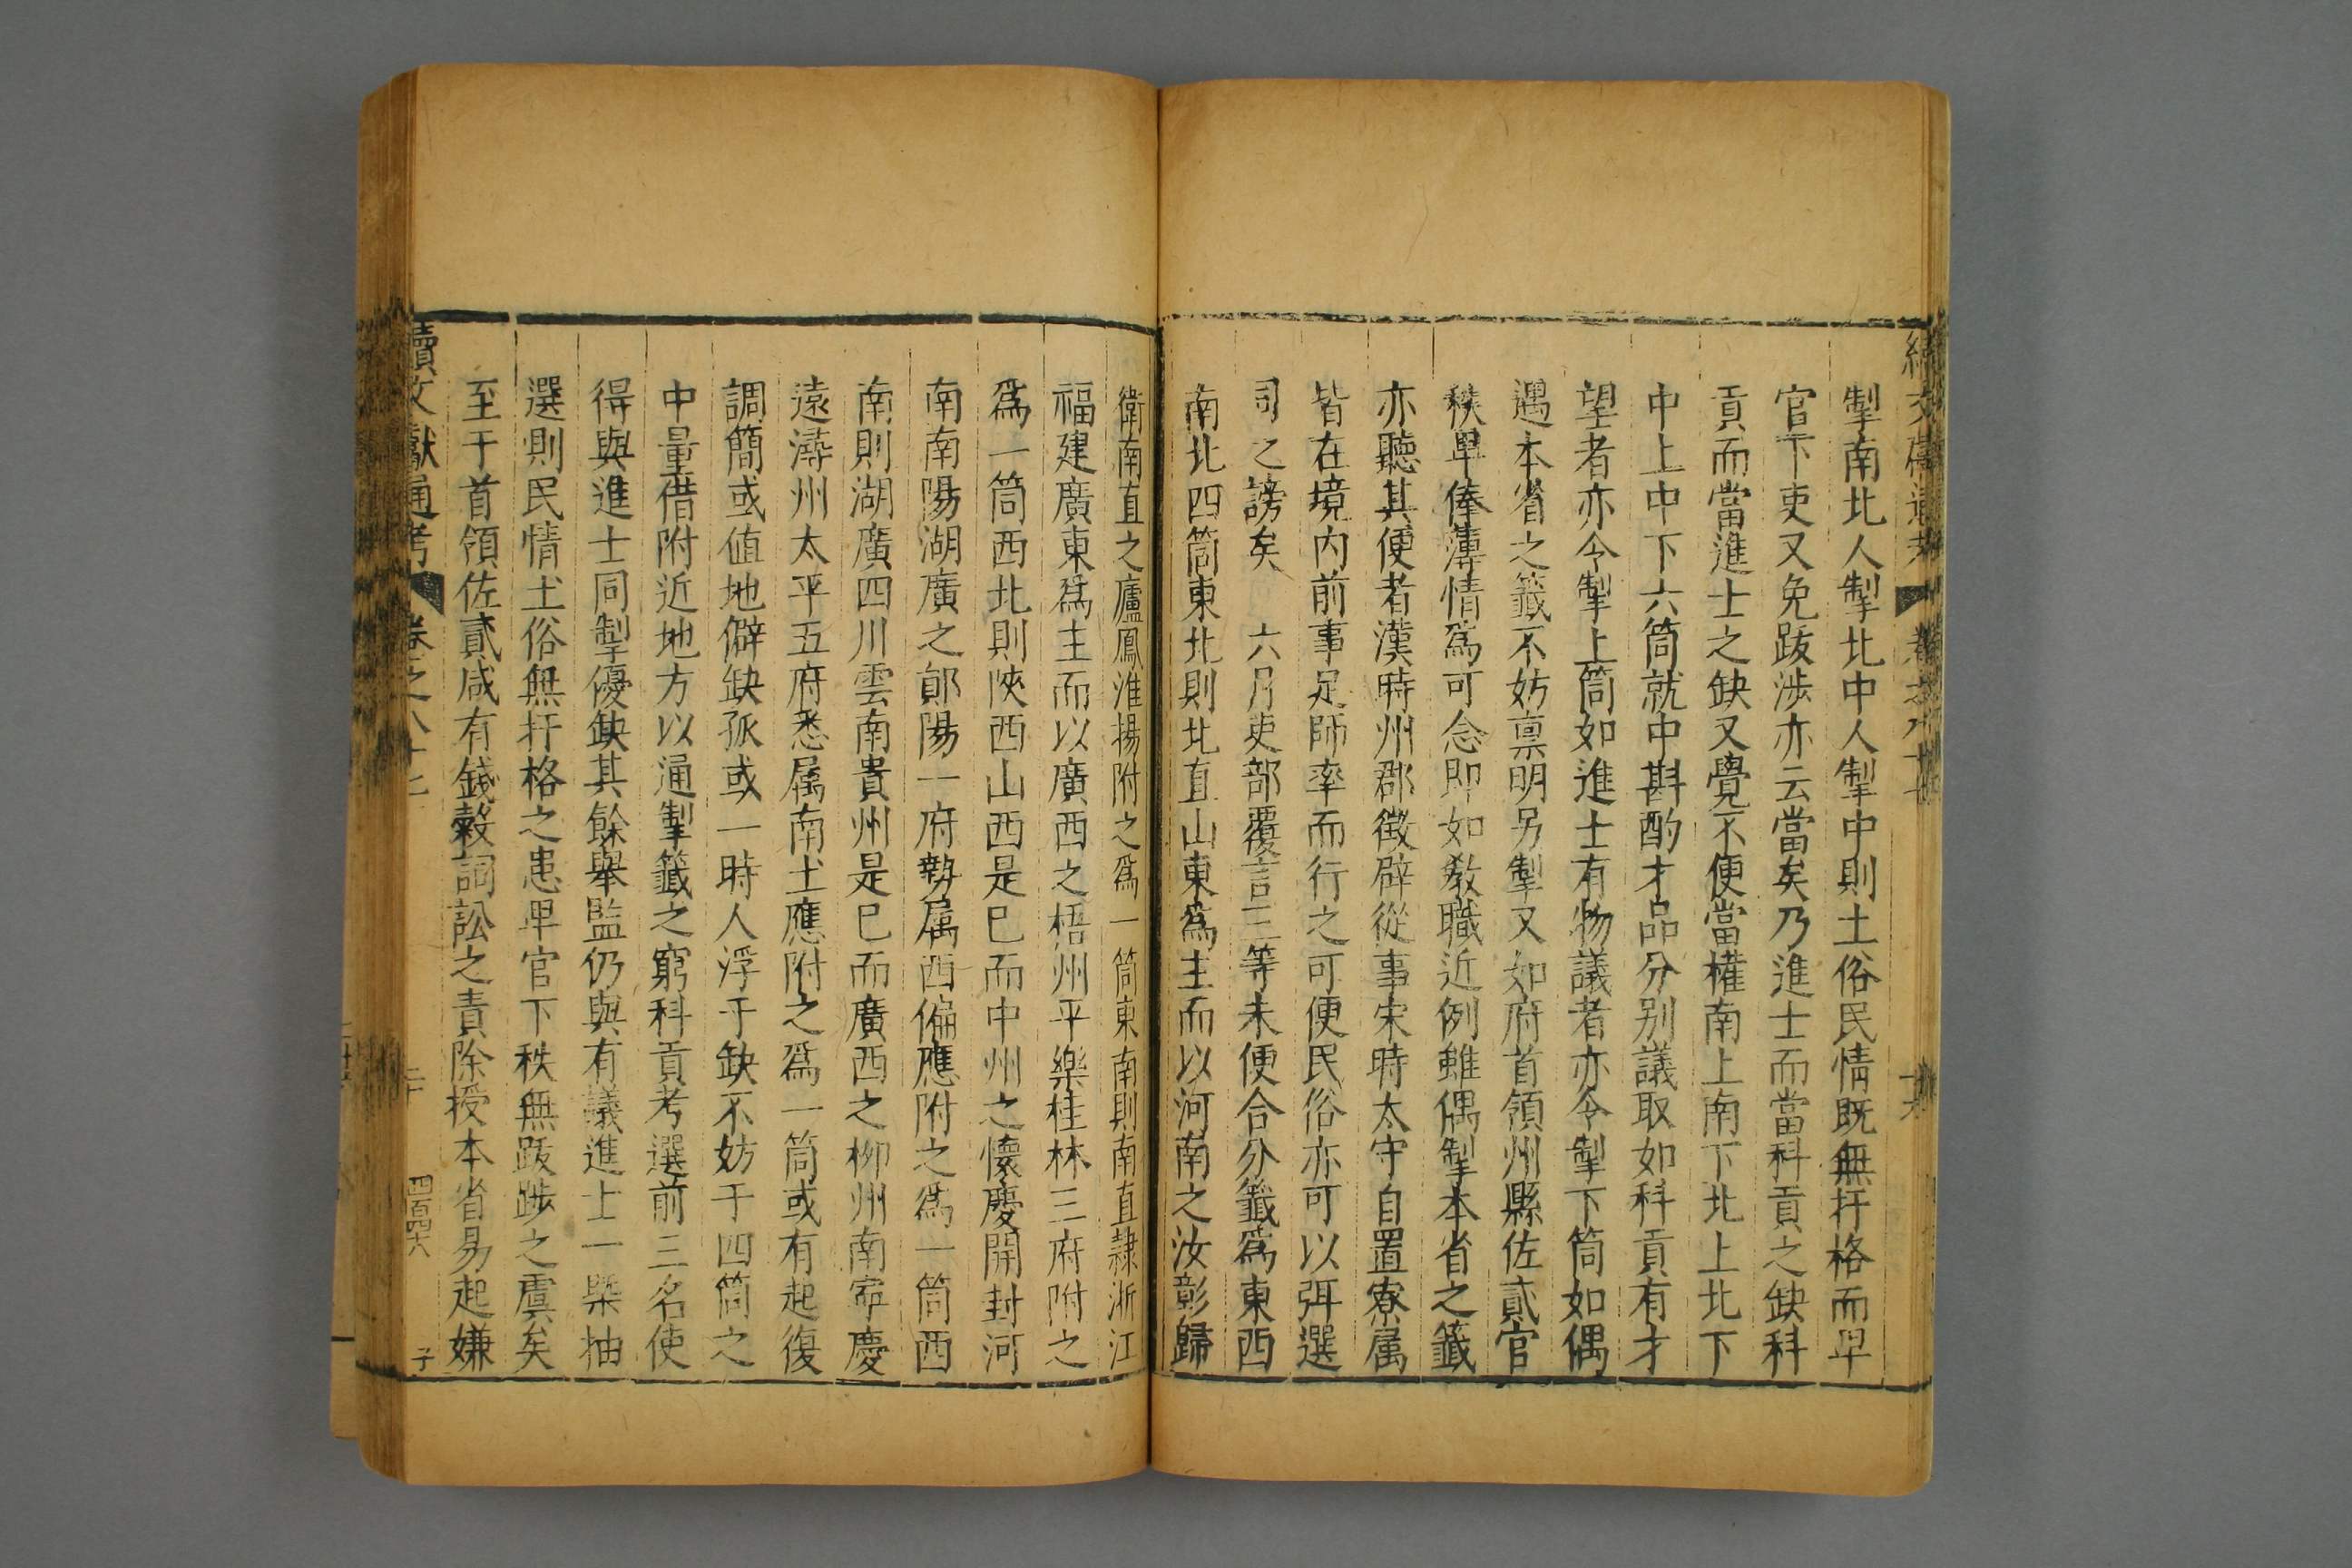 掣南北人掣北中人掣中則土俗民情既無扞格而卑
官下吏又免跋涉亦云當矣乃進士而當科貢之缺科
貢而當進士之缺又覺不便當權南上南下北上北下
中上中下六筒就中斟酌才品分別議取如科貢有才
望者亦令掣上筒如進士有物議者亦令掣下筒如偶
遇本省之籤不妨禀明另掣又如府首領州縣佐貳官
秩卑俸薄情爲可念即如敎職近例雖偶掣本省之籤
亦聽其便者漢時州郡徴辟從事宋時太守自置寮属
皆在境内前事足師率而行之可便民俗亦可以弭選
司之謗矣 六月吏部覆言三等未便合分籤爲東西
南北四筒東北則北直山東爲主而以河南之汝彰歸
衛南直之廬鳳淮揚附之爲一筒東南則南直隷浙江
福建廣東爲主而以廣西之梧州平樂桂林三府附之
爲一筒西北則陜西山西是已而中州之懷慶開封河
南南陽湖廣之鄖陽一府勢属西偏應附之爲一筒西
南則湖廣四川雲南貴州是已而廣西之柳州南寧慶
遠潯州太平五府悉属南土應附之爲一筒或有起復
調簡或值地僻缺孤或一時人浮于缺不妨于四筒之
中量借附近地方以通掣籤之窮科貢考選前三名使
得與進士同掣優缺其餘舉監仍與有議進士一槩抽
選則民情土俗無扞格之患卑官下秩無跋踄之虞矣
至于首領佐貳咸有錢糓詞訟之責除授本省易起嫌
續文獻通考 卷之八十七 二十 四百四六 子